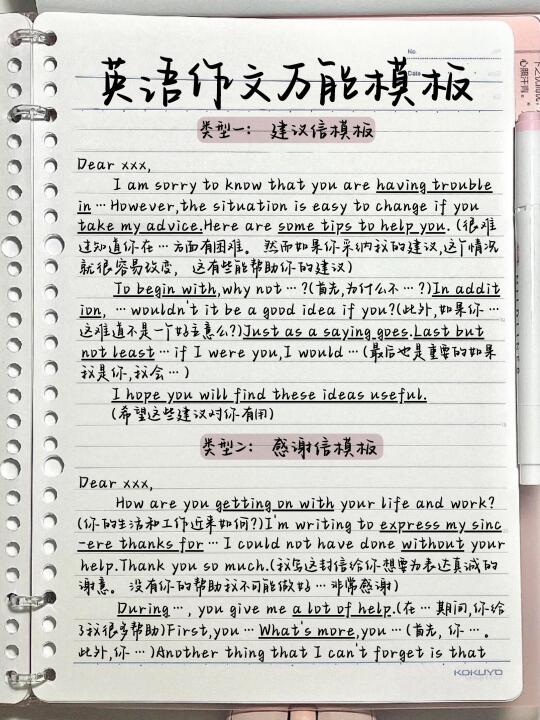 No.
Date
英语作文万能模板
类型一: 建议信模板
Dear xxx,
I am sorry to know that you are having trouble
in…However,the situation is easy to change if you
take my advice.Here are some tips to help you. (很难
过知道你在…方面有困难。然而如果你采纳我的建议,这个情况
就很容易改变, 这有些能帮助你的建议)
To begin with,why not…?(首先,为什么不…?)In addit
ion, …wouldn't it be a good idea if you?(此外,如果你…
这难道不是一个好主意么?)Just as a saying goes.Last but
not least…if I were you,I would…(最后也是重要的如果
我是你,我会…)
I hope you will find these ideas useful.
(希望这些建议对你有用)
类型二: 感谢信模板
Dear xxx,
How are you getting on with your life and work?
(你的生活和工作近来如何?)I'm writing to express my sinc
-ere thanks for…I could not have done without your
help.Thank you so much.(我写这封信给你想要为表达真诚的
谢意。没有你的帮助我不可能做好…非常感谢)
During…, you give me a lot of help.(在…期间,你给
了我很多帮助)First,you…What's more,you…(首先, 你…。
此外,你…)Another thing that I can't forget is that
KOKUYO
心照汗青。